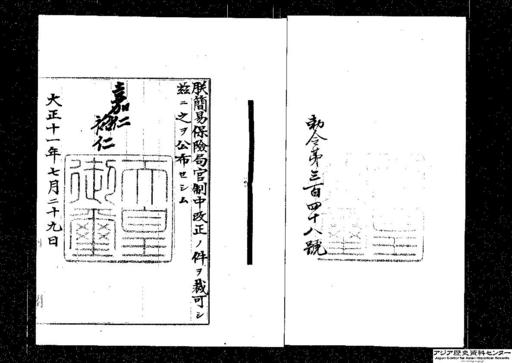 勅令第三百四十八號
朕簡易保險局官制中改正ノ件ヲ裁可シ
玆ニ之ヲ公布セシム
嘉仁
裕仁
天皇御璽
大正十一年七月二十九日
アジア歴史資料センター
Japan Center for Asian Historical Records